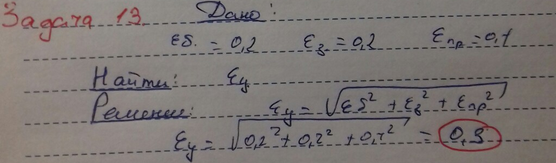 Задача 13 Дано:
εs. = 0,2 εв = 0,2 εпр = 0,1
Найти: εy
Решение: εy = √εs² + εв² + εпр²
εy = √0,2² + 0,2² + 0,1² = 0,3